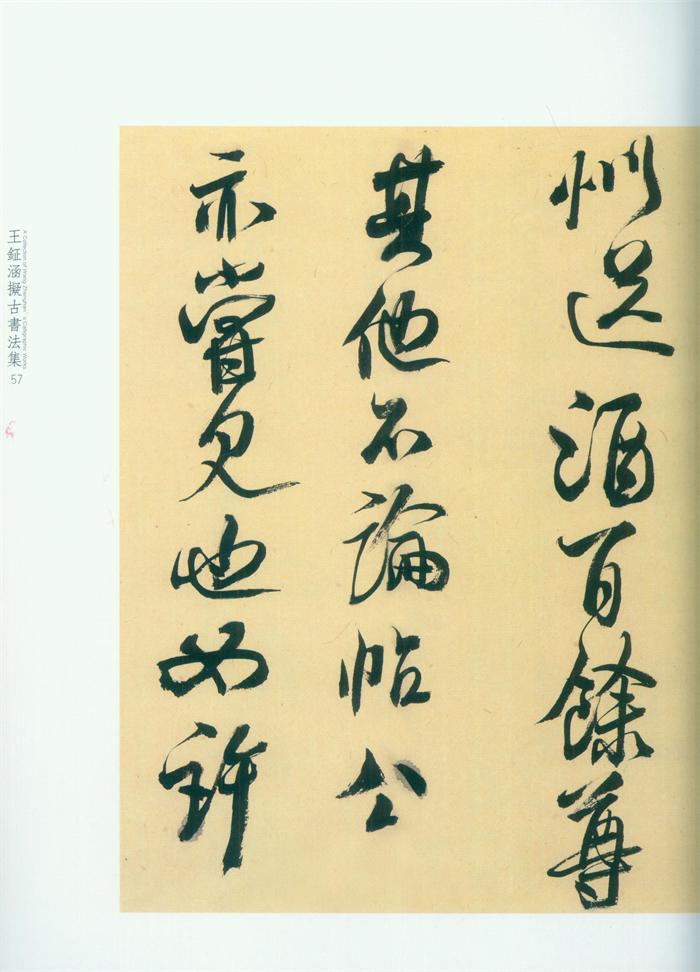 州送酒百餘尊
其他不論帖公
亦嘗見也如許
王鉦涵擬古書法集
A Collection of Wang Zhenghan's Calligraphic Works
57